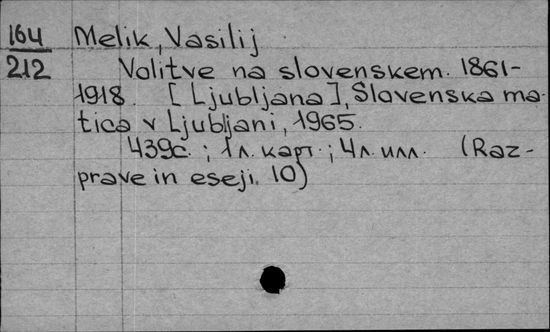 164 Melik, Vasilij
212 Volitve na slovenskem. 1861-
1918. [Ljubljana], Slovenska ma-
tica v Ljubljani, 1965.
439с.; 1л. карт.; 4л. илл. (Raz-
prave in eseji. 10)